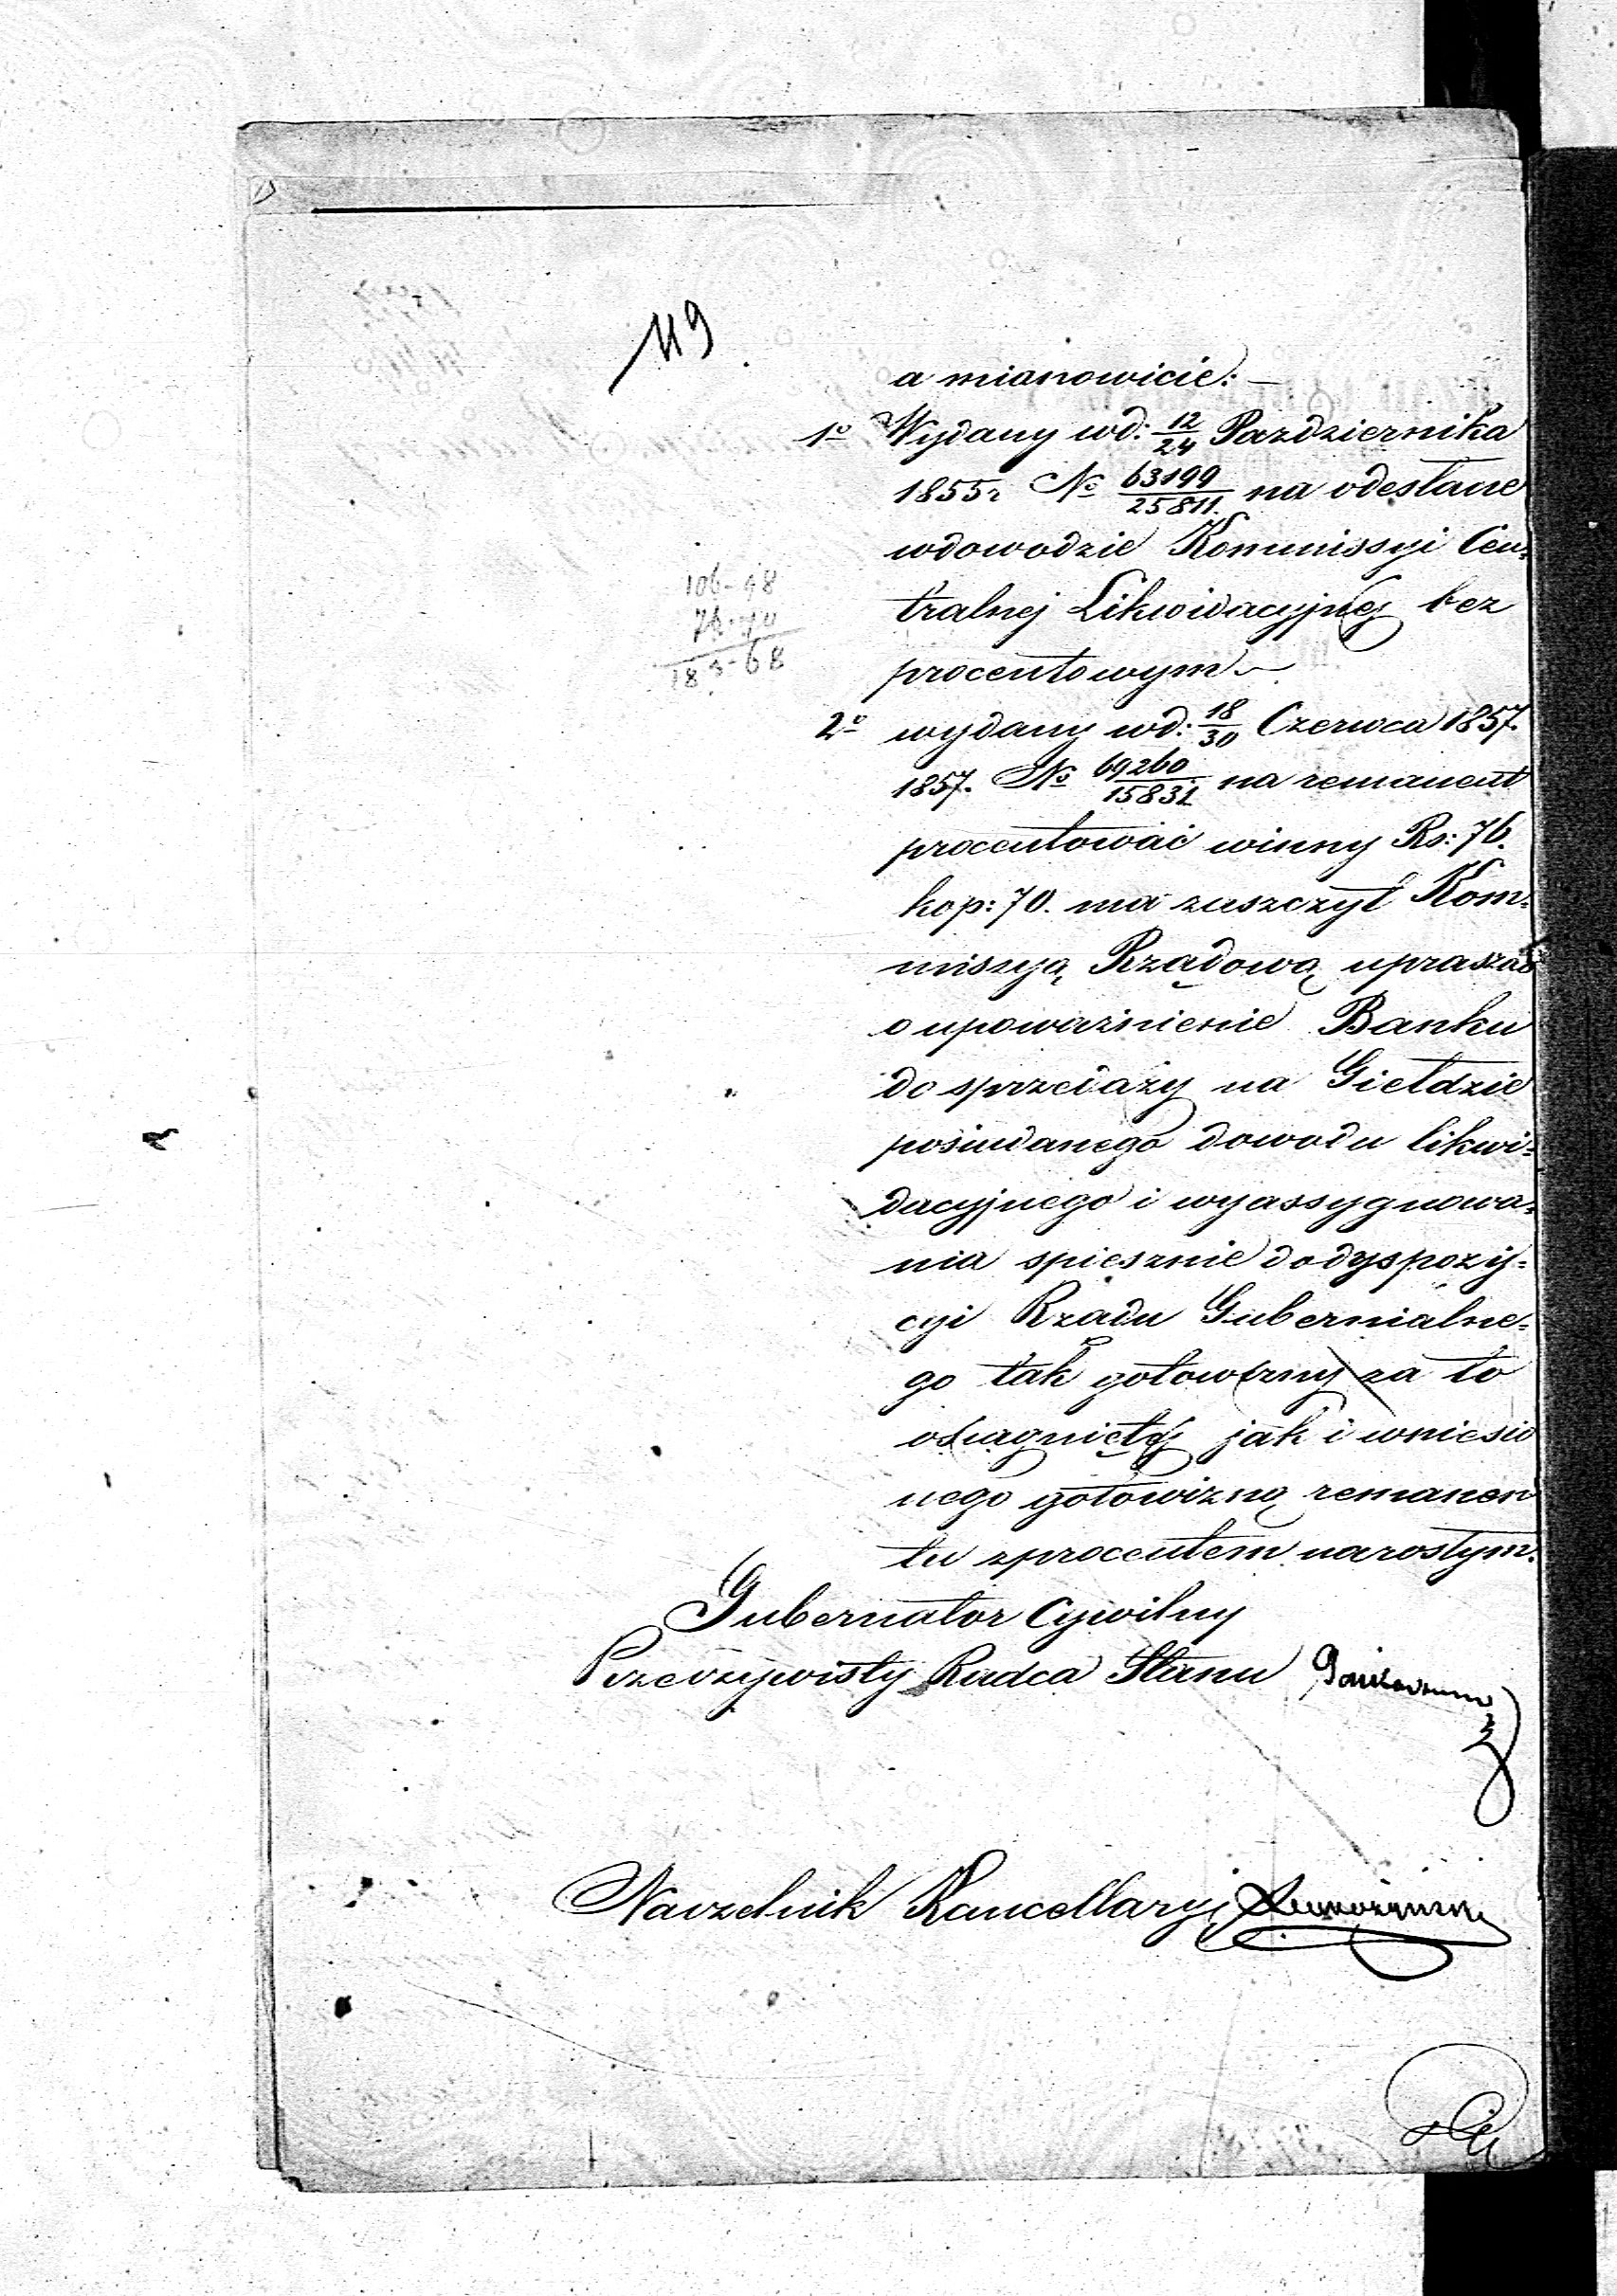 119
a mianowicie: —
1º Wydany wd: 12/24 Pazdziernika
1855r Nº 63199/25811. na odesłane
wdowodzie Kommissyi Cen=
tralnej Likwidacyjnej bez
procentowym —
106-98
76-70
183-68
2º wydany wd: 18/30 Czerwca 1857.
1857. Nº 69260/15831 na remanent
procentować winny Rs: 76.
kop: 70. ma zaszczyt Kom=
missyą Rządową upraszać
o upoważnienie Banku
do sprzedaży na Giełdzie
posiadanego dowodu likwi=
dacyjnego i wyassygnowa=
nia spiesznie do dyspozy=
cyi Rządu Gubernialne=
go tak gotowizny za to
osiągniętej jak i wniesio
nego gotowizną remanen
tu z procentem narosłym.
Gubernator Cywilny
Rzeczywisty Radca Stanu
Naczelnik Kancellaryi